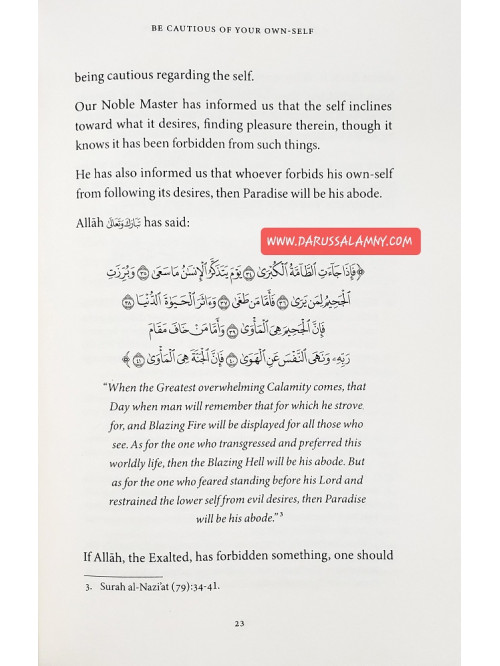 BE CAUTIOUS OF YOUR OWN-SELF
being cautious regarding the self.
Our Noble Master has informed us that the self inclines
toward what it desires, finding pleasure therein, though it
knows it has been forbidden from such things.
He has also informed us that whoever forbids his own-self
from following its desires, then Paradise will be his abode.
Allāh تَبَارَكَ وَتَعَالَى has said:
WWW.DARUSSALAMNY.COM
﴿ فَإِذَا جَآءَتِ ٱلطَّآمَّةُ ٱلْكُبْرَىٰ ۝٣٤ يَوْمَ يَتَذَكَّرُ ٱلْإِنسَٰنُ مَا سَعَىٰ ۝٣٥ وَبُرِّزَتِ
ٱلْجَحِيمُ لِمَن يَرَىٰ ۝٣٦ فَأَمَّا مَن طَغَىٰ ۝٣٧ وَءَاثَرَ ٱلْحَيَوٰةَ ٱلدُّنْيَا ۝٣٨
فَإِنَّ ٱلْجَحِيمَ هِىَ ٱلْمَأْوَىٰ ۝٣٩ وَأَمَّا مَنْ خَافَ مَقَامَ
رَبِّهِۦ وَنَهَى ٱلنَّفْسَ عَنِ ٱلْهَوَىٰ ۝٤٠ فَإِنَّ ٱلْجَنَّةَ هِىَ ٱلْمَأْوَىٰ ۝٤١ ﴾
“When the Greatest overwhelming Calamity comes, that
Day when man will remember that for which he strove
for, and Blazing Fire will be displayed for all those who
see. As for the one who transgressed and preferred this
worldly life, then the Blazing Hell will be his abode. But
as for the one who feared standing before his Lord and
restrained the lower self from evil desires, then Paradise
will be his abode.”³
If Allāh, the Exalted, has forbidden something, one should
3. Surah al-Nazi'at (79):34-41.
23